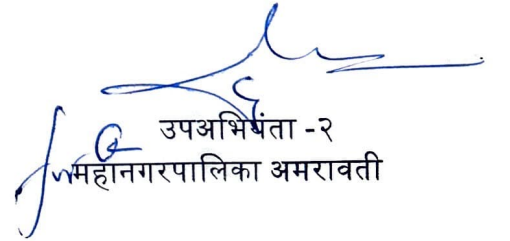 उपअभियंता -२
महानगरपालिका अमरावती